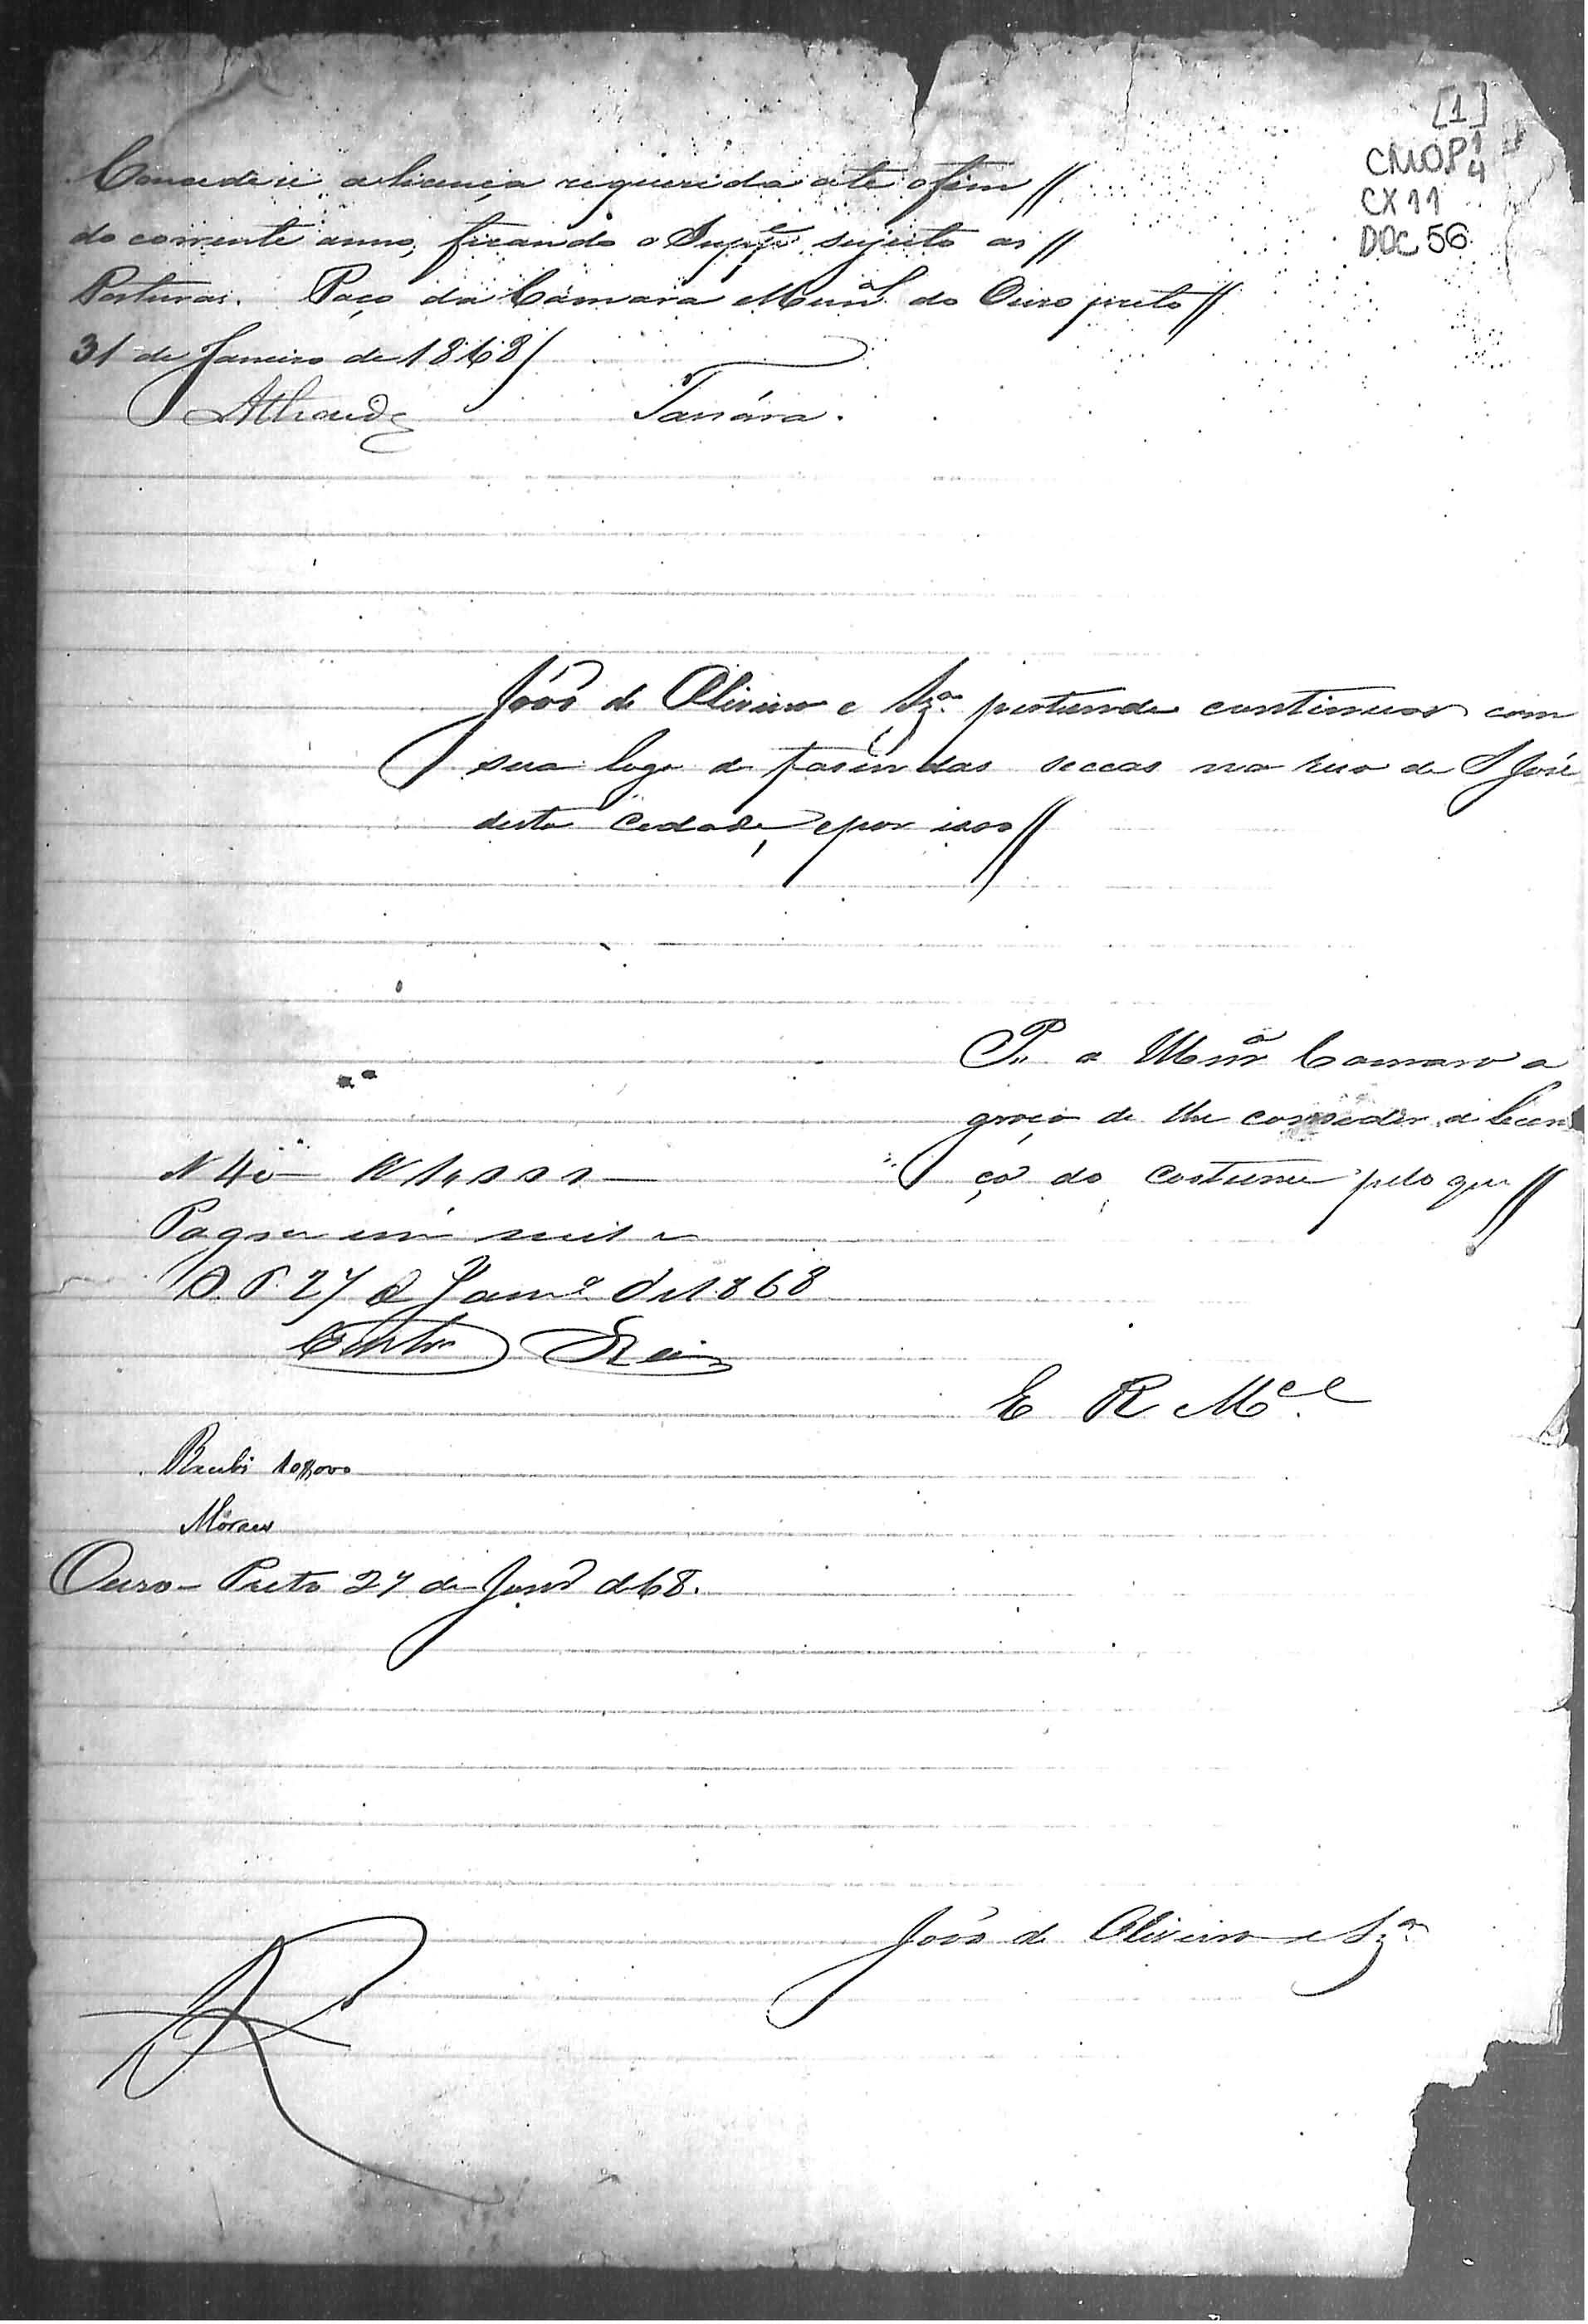 [1]
CMOP 1/4
CX 11
DOC 56
Concede-se a licença requerida até o fim //
do corrente anno, ficando o Supp.e sujeito as //
Posturas. Paço da Camara Mun.al do Ouro preto //
31 de Janeiro de 1868/
Tassára.
João de Oliveira e Sz.a pertende continuar com
sua loge de fasendas seccas na rua de S José
desta Cedade, e por isso //
P. a Mun.a Camara a
graça de lhe conseder a licen
ça do costume pelo que //
N 40
Pagou um mil r
O. P. 27 d Janr.o d 1868
Castro Reis
E R M.ce
Recebi 10$000
Moraes
Ouro-Preto 27 de Janr.o d 68.
João de Oliveira e Sz.a